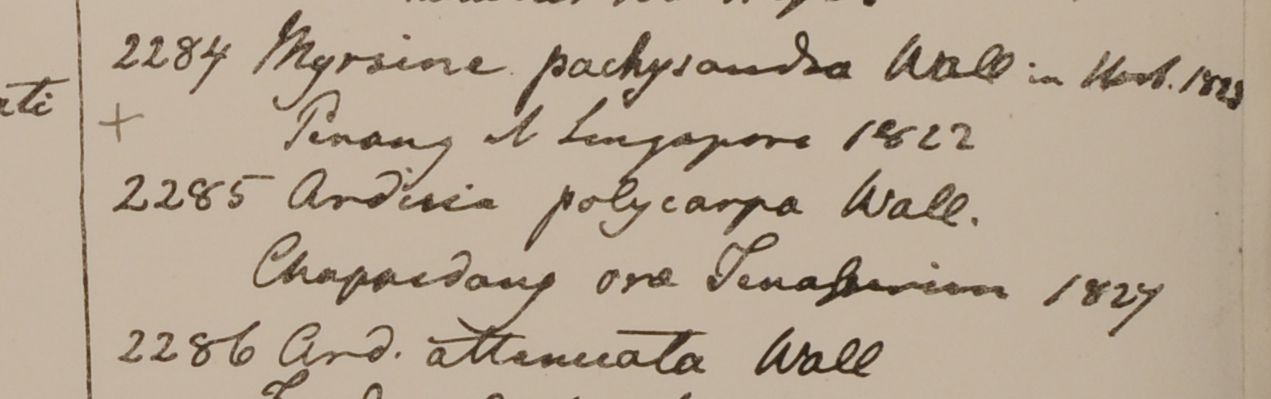 2284 Myrsine pachysandra Wall in Herb. 1823
+ Penang et Singapore 1822
2285 Ardisia polycarpa Wall.
Chappedong oræ Tenasserim 1827
2286 Ard. attenuata Wall